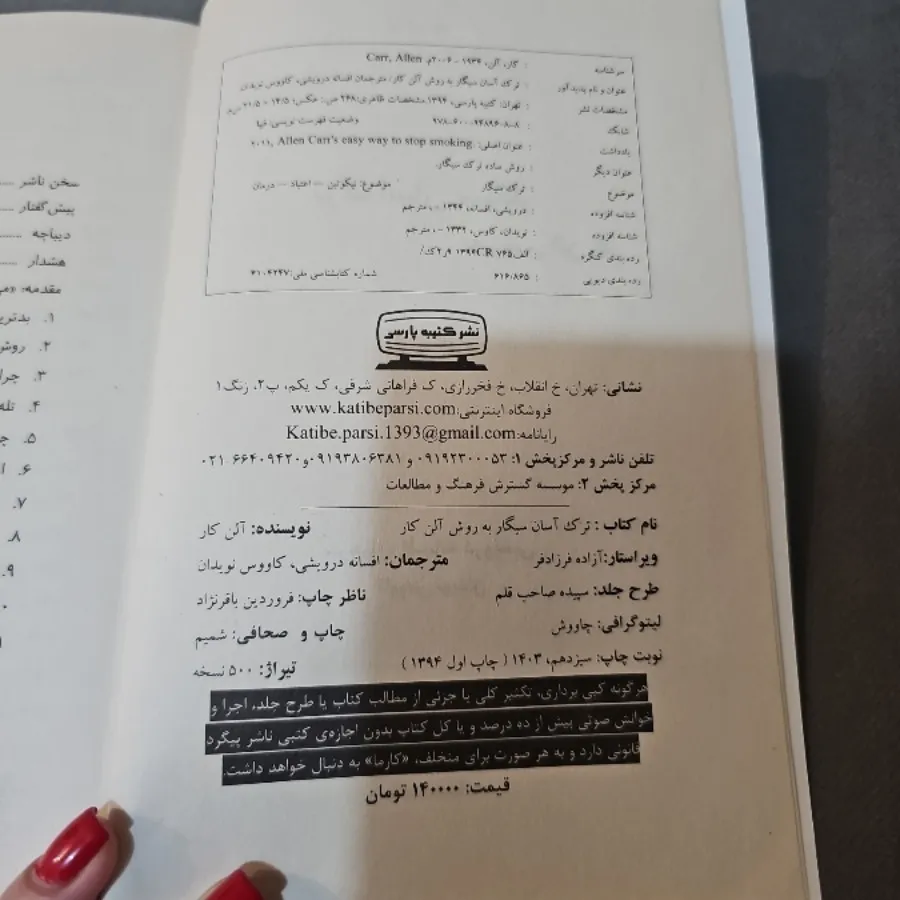 سرشناسه : کار، آلن، ۱۹۳۴ - ۲۰۰۶م. Carr, Allen
عنوان و نام پدیدآور : ترک آسان سیگار به روش آلن کار/ مترجمان افسانه درویشی، کاووس نویدان
مشخصات نشر : تهران: کتیبه پارسی، ۱۳۹۴ مشخصات ظاهری: ۲۴۸ ص.: عکس؛ ۱۴/۵ × ۲۱/۵ س‌م
شابک : ۹۷۸-۶۰۰-۹۴۸۹۶-۸-۸ وضعیت فهرست نویسی: فیپا
یادداشت : عنوان اصلی: Allen Carr's easy way to stop smoking, ۲۰۱۱
عنوان دیگر : روش ساده ترک سیگار.
موضوع : ترک سیگار موضوع: نیکوتین -- اعتیاد -- درمان
شناسه افزوده : درویشی، افسانه، ۱۳۴۴ - ، مترجم
شناسه افزوده : نویدان، کاوس، ۱۳۳۹ - ، مترجم
رده بندی کنگره : ۱۳۹۴CR ۷۶۵الف/ک۲ر۹
رده بندی دیویی : ۶۱۶/۸۶۵ شماره کتابشناسی ملی: ۴۱۰۴۲۴۷
نشر کتیبه پارسی
نشانی: تهران، خ انقلاب، خ فخررازی، ک فراهانی شرقی، ک یکم، پ۲، زنگ۱
فروشگاه اینترنتی:www.katibeparsi.com
رایانامه:Katibe.parsi.1393@gmail.com
تلفن ناشر و مرکزپخش ۱: ۰۹۱۹۲۳۰۰۰۵۳ و ۰۹۱۹۳۸۰۶۳۸۱و ۶۶۴۰۹۴۲۰ ۰۲۱
مرکز پخش ۲: موسسه گسترش فرهنگ و مطالعات
نام کتاب : ترک آسان سیگار به روش آلن کار نویسنده: آلن کار
ویراستار:آزاده فرزادفر مترجمان: افسانه درویشی، کاووس نویدان
طرح جلد: سپیده صاحب قلم ناظر چاپ: فروردین باقرنژاد
لیتوگرافی: چاووش چاپ و صحافی: شمیم
نوبت چاپ: سیزدهم، ۱۴۰۳ ( چاپ اول ۱۳۹۴ ) تیراژ: ۵۰۰ نسخه
هرگونه کپی برداری، تکثیر کلی یا جزئی از مطالب کتاب یا طرح جلد، اجرا و
خوانش صوتی پیش از ده درصد و یا کل کتاب بدون اجازه‌ی کتبی ناشر پیگرد
قانونی دارد و به هر صورت برای متخلف، «کارما» به دنبال خواهد داشت.
قیمت: ۱۴۰۰۰۰ تومان
سخن ناشر
پیش‌گفتار
دیباچه
هشدار
مقدمه:
۱.
۲. روش
۳. چرا
۴. تله
۵.
۶.
۷.
۸.
۹.